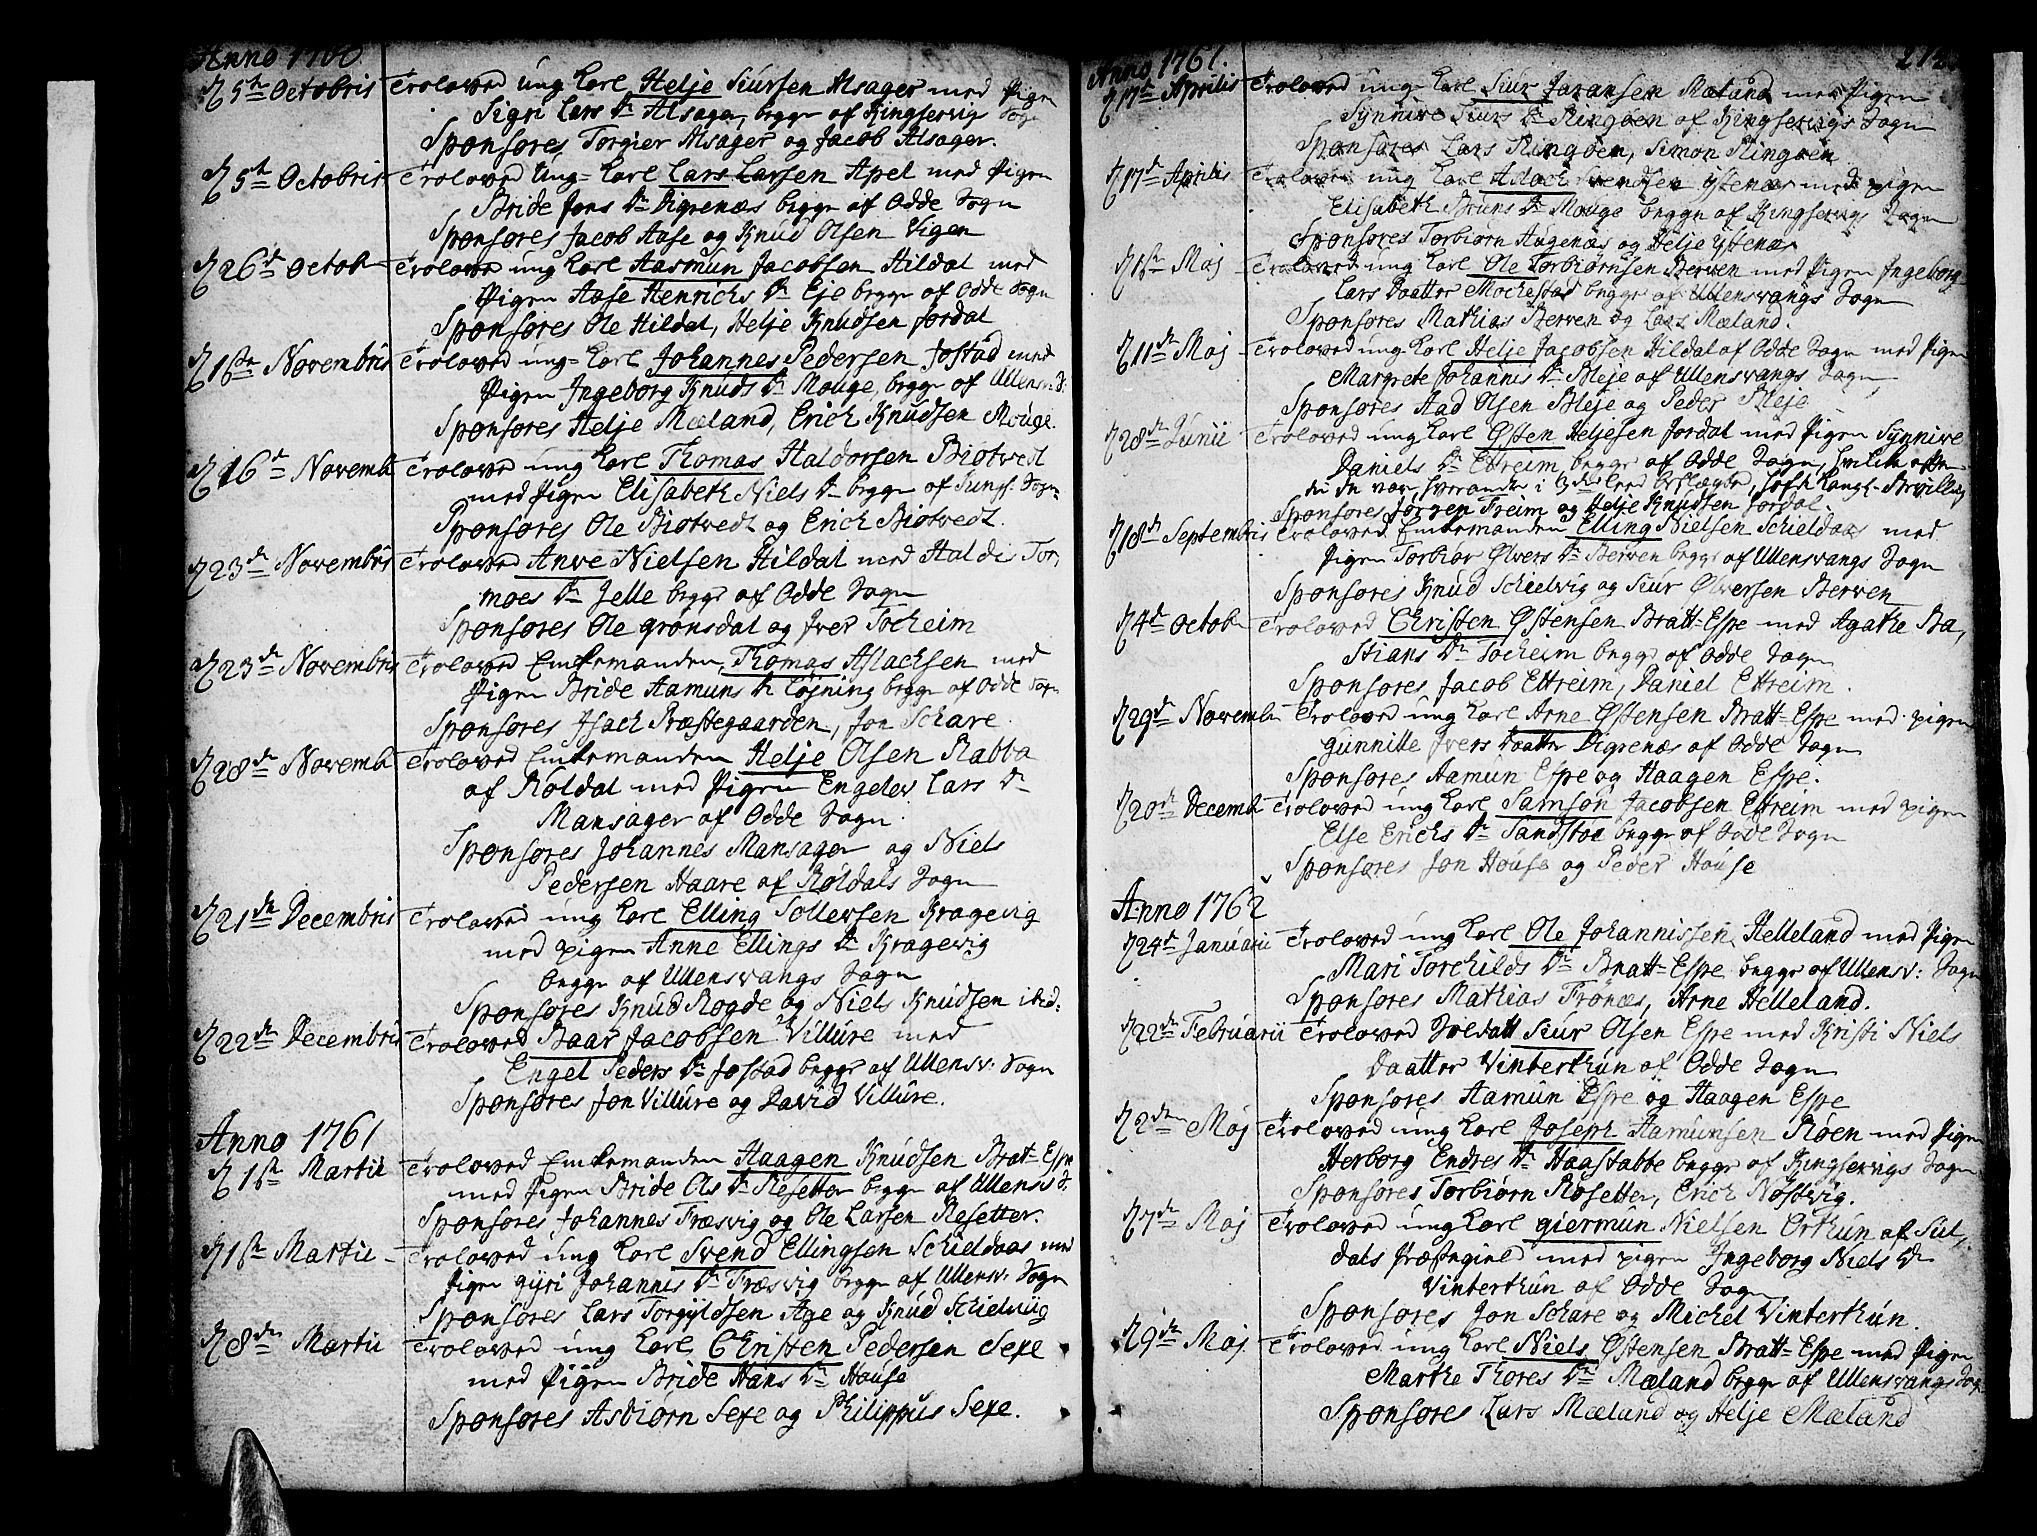 Anno 1760
D 5te Octobris Troloved ung Karl Helje Siursen Alsager med Pigen
Sigri Lars Dr Alsager, begge af Kingservig Sogn
Sponsores Torgier Alsager og Jacob Alsager.
D 5te Octobris Troloved ung Karl Lars Larsen Apel med Pigen
Bride Jons Dr Digrenæs begge af Odde Sogn
Sponsores Jacob Aase og Knud Olsen Vigen
D 26de Octob Trolovet ung Karl Aasmun Jacobsen Hildal med
Pigen Aase Henrichs Dr Eje begge af Odde Sogn
Sponsores Ole Hildal, Helje Knudsen Jordal
D 16de Novembris Trolovet ung Karl Johannes Pedersen Jostad med
Pigen Ingeborg Knuds Dr Mouge, begge af Ullensv: S:
Sponsores Helje Mæland, Erich Knudsen Mouge.
D 16de Novemb Trolovet ung Karl Thomas Haldorsen Biotvedt
med Pigen Elisabeth Niels Dr begge af Sogn
Sponsores Ole Biotvedt og Erich Biotvedt.
D 23de Novembris Troloved Anve Nielsen Hildal med Haldis Tor,
moes Dr Jelle begge af Odde Sogn
Sponsores Ole Gronsdal og Iver Tocheim
D 23de Novembris Trolovet Enkemanden Thomas Aslachsen med
Pigen Bride Aamuns Dr Løjning begge af Odde Sogn
Sponsores Isach Præstegaarden, Jon Schare
D 28de Novemb Trolovet Enkemanden Helje Olsen Rabba
af Røldal med Pigen Engelev Lars Dr
Mansager af Odde Sogn
Sponsores Johannes Mansager og Niels
Pedersen Haare af Røldals Sogn
D 21de Decembris Trolovet ung Karl Elling Tollevsen Kragevig
med pigen Anne Ellings Dr Kragevig
begge af Ullensvangs Sogn
Sponsores Knud Rogde og Niels Knudsen ibid:
D 22de Decembris Trolovet Baar Jacobsen Villure med
Engel Peders Dr Jostad begge af Ullensv: Sogn
Sponsores Jon Villure og David Villure.
Anno 1761
D 1ste Martii Trolovet Enkemanden Haagen Knudsen Brat=Espe
med Pigen Bride Ols Dr Resetter begge af Ullensv S:
Sponsores Johannes Træsvig og Ole Larsen Resetter.
D 1ste Martii Trolovet ung Karl Svend Ellingsen Schieldaas med
Pigen Gyri Johannis Dr Træsvig begge af Ullensv: Sogn
Sponsores Lars Torgyldsen Age og Knud Schielvig
D 8de Martii Trolovet ung Karl Christen Pedersen Sexe
med Pigen Bride Hans Dr House
Sponsores Asbiorn Sexe og Philippus Sexe.
Anno 1761.
D 17de Aprilis Trolovet ung Karl Siur Mæland med Pigen
Synnive Siurs Dr Ringøen af Kingservigs Sogn
Sponsores Lars Ringøen, Simon Ringøen
D 17de Aprilis Trolovet ung Karl Aslach Ystenæs med pigen
Elisabeth Bruns Dr Mouge begge af Kingservigs Sogn
Sponsores Torbiørn Augenæs og Helje Ystenæs
D 1ste Maj Trolovet ung Karl Ole Torbiørnsen Berven med Pigen Ingeborg
Lars Daatter Mochestad begge af Ullensvangs Sogn
Sponsores Mathias Berven og Lars Mæland.
D 11de Maj Trolovet ung Karl Helje Jacobsen Hildal af Odde Sogn med Pigen
Margrete Johannis Dr Bleje af Ullensvangs Sogn
Sponsores Aad Olsen Bleje og Peder Bleje
D 28de Junii Trolovet ung Karl Østen Heljesen Jordal med Pigen Synnive
Daniels Dr Ettreim begge af Odde Sogn,
Sponsores Jørgen Freim og Helje Knudsen Jordal.
D 18de Septembris Trolovet Enkemanden Elling Nielsen Schieldaas med
Pigen Torbiør Ølvers Dr Berven begge af Ullensvangs Sogn
Sponsores Knud Schielvig og Siur Ølversen Berven
D 4de Octob Trolovet Christen Østensen Bratt=Espe med Agathe Ba,
stians Dr Tocheim begge af Odde Sogn
Sponsores Jacob Ettreim, Daniel Ettreim.
D 29de Novemb Trolovet ung Karl Arne Østensen Bratt=Espe med pigen
Gunnille Ivers Daatter Digrenæs af Odde Sogn
Sponsores Aamun Espe og Haagen Espe.
D 20de Decemb Trolovet ung Karl Samson Jacobsen Ettreim med pigen
Else Erichs Dr Sandstøe begge af Odde Sogn
Sponsores Jon House og Peder House
Anno 1762
D 24de Januarii Trolovet ung Karl Ole Johannissen Helleland med Pigen
Mari Torchilds Dr Bratt=Espe begge af Ullensv: Sogn
Sponsores Mathias Frønæs, Arne Helleland.
D 22de Februarii Trolovet Soldatt Siur Olsen Espe med Kristi Niels
Daatter Vinterthun af Odde Sogn
Sponsores Aamun Espe og Haagen Espe
D 2den Maj Trolovet ung Karl Joseph Aamunsen Røen med Pigen
Herborg Endres Dr Haastabbe begge af Kingservigs Sogn
Sponsores Torbiørn Rosetter, Erich Nøstvig.
D 7de Maj Trolovet ung Karl Giermun Nielsen Orthun af Sul,
dals Præstegield med pigen Ingeborg Niels Dr
Vinterthun af Odde Sogn
Sponsores Jon Schare og Michel Vinterthun.
D 9de Maj Trolovet ung Karl Niels Østensen Bratt=Espe med Pigen
Marthe Thores Dr Mæland begge af Ullensvangs Sogn
Sponsores Lars Mæland og Helje Mæland